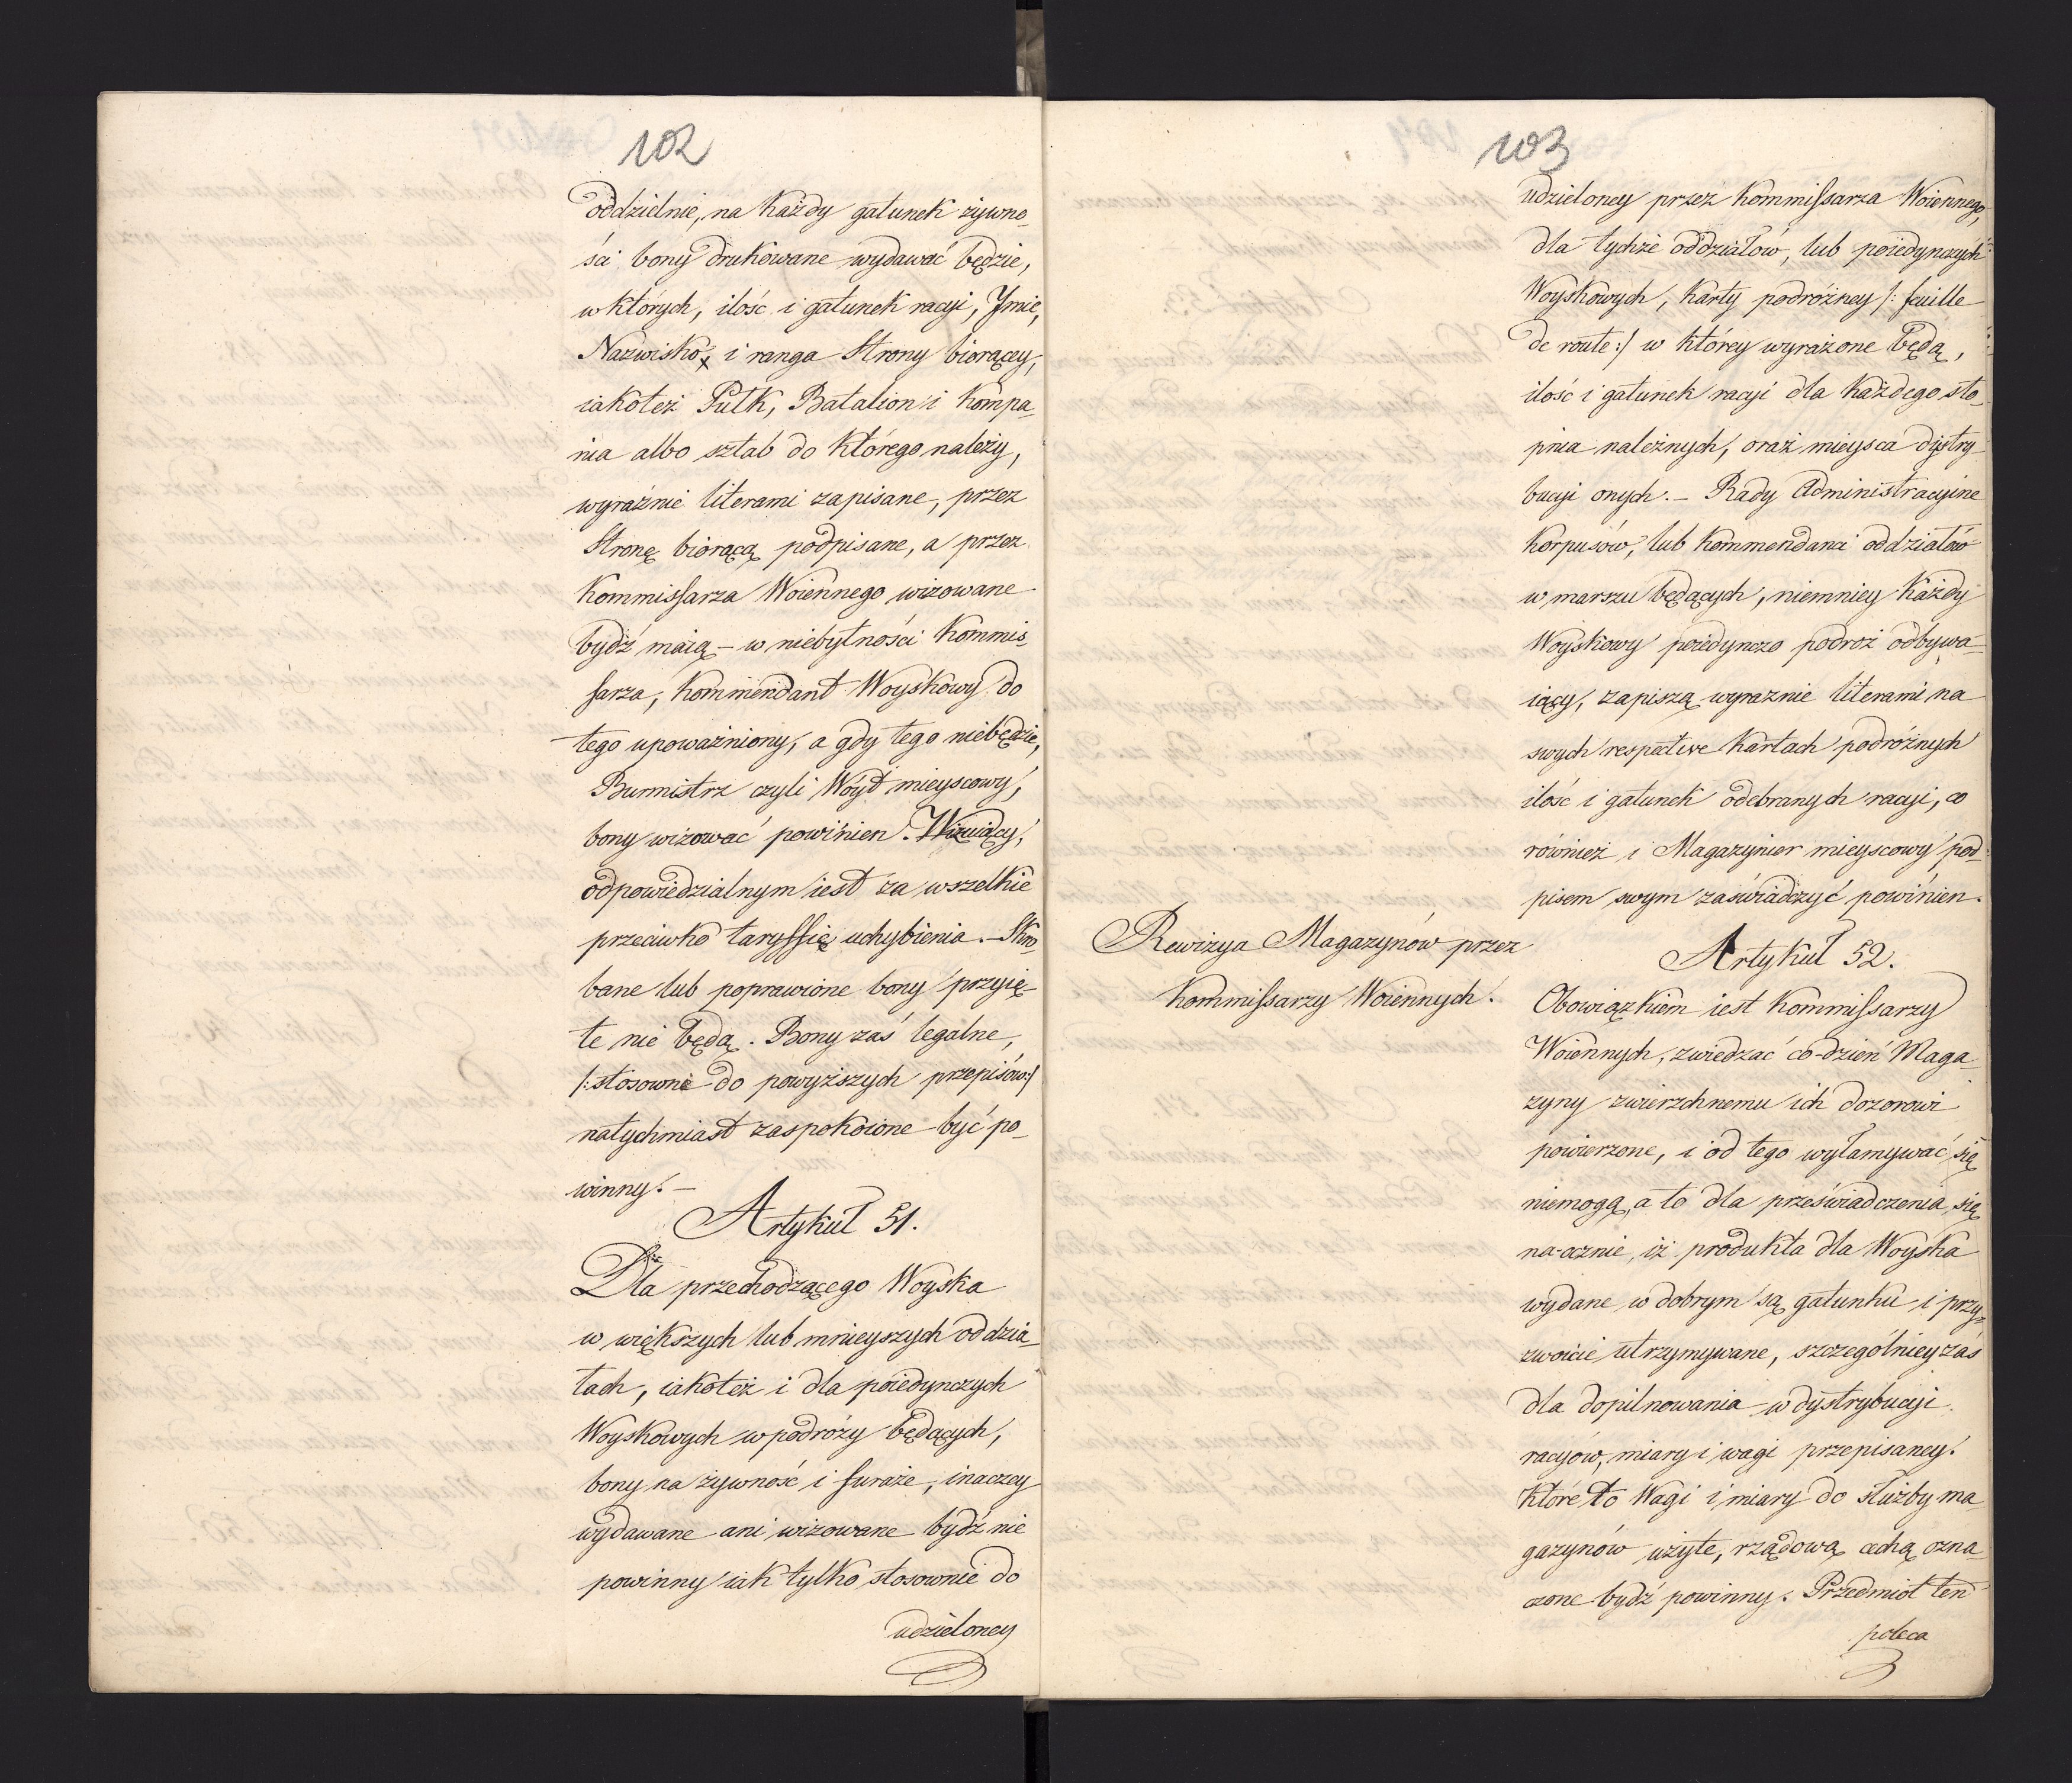 102
oddzielnie, na każdy gatunek żywno-
ści bony drukowane wydawać będzie,
w których, ilość i gatunek racyi, Jmie,
Nazwisko, i ranga Strony biorącey,
iakoteż Pułk, Batalion i Kompa-
nia albo sztab do którego należy,
wyraźnie literami zapisane, przez
Stronę biorącą podpisane, a przez
Kommissarza Woiennego wizowane
bydź maią – w niebytności Kommis-
sarza, Kommendant Woyskowy do
tego upoważniony, a gdy tego niebędzie,
Burmistrz czyli Wóyt mieyscowy,
bony wizować powinien. Wizuiący,
odpowiedzialnym iest za wszelkie
przeciwko taryffię uchybienia. – Skro-
bane lub poprawione bony przyię-
te nie będą. Bony zaś legalne,
/: stosownie do powyższych przepisów :/
natychmiast zaspokoione być po-
winny. –
Artykuł 51.
Dla przechodzącego Woyska
w większych lub mnieyszych oddzia-
łach, iakoteż i dla poiedynczych
Woyskowych w podróży będących,
bony na żywność i furaże, inaczey
wydawane ani wizowane bydź nie
powinny iak tylko stosownie do
udzieloney
103
udzieloney przez Kommissarza Woiennego,
dla tychże oddziałów, lub poiedynczych
Woyskowych, Karty podróżney /: feuille
de route :/ w którey wyrażone będą,
ilość i gatunek racyi dla każdego sto-
pnia należnych, oraz mieysca dystry-
bucyi onych. – Rady Administracyine
Korpusów, lub Kommendanci oddziałów
w marszu będących, niemniey Każdy
Woyskowy poiedynczo podroż odbywa-
iący, zapiszą wyraznie literami na
swych respective Kartach podróżnych
ilość i gatunek odebranych racyi, co
również i Magazynier mieyscowy pod-
pisem swym zaświadczyć powinien.
Rewizya Magazynów przez
Kommissarzy Woiennych.
Artykuł 52.
Obowiązkiem iest Kommissarzy
Woiennych, zwiedzać co-dzień Maga-
zyny zwierzchnemu ich dozorowi
powierzone, i od tego wyłamywać się
niemogą, a to dla przeświadczenia się
na-ocznie, iż produkta dla Woyska
wydane w dobrym są gatunku i przy-
zwoicie utrzymywane, szczególniey zaś
dla dopilnowania w dystrybucyi
racyów, miary i wagi przepisaney.
Które to Wagi i miary do służby ma
gazynów użyte, rządową cechą ozna-
czone bydź powinny. Przedmiot ten
poleca